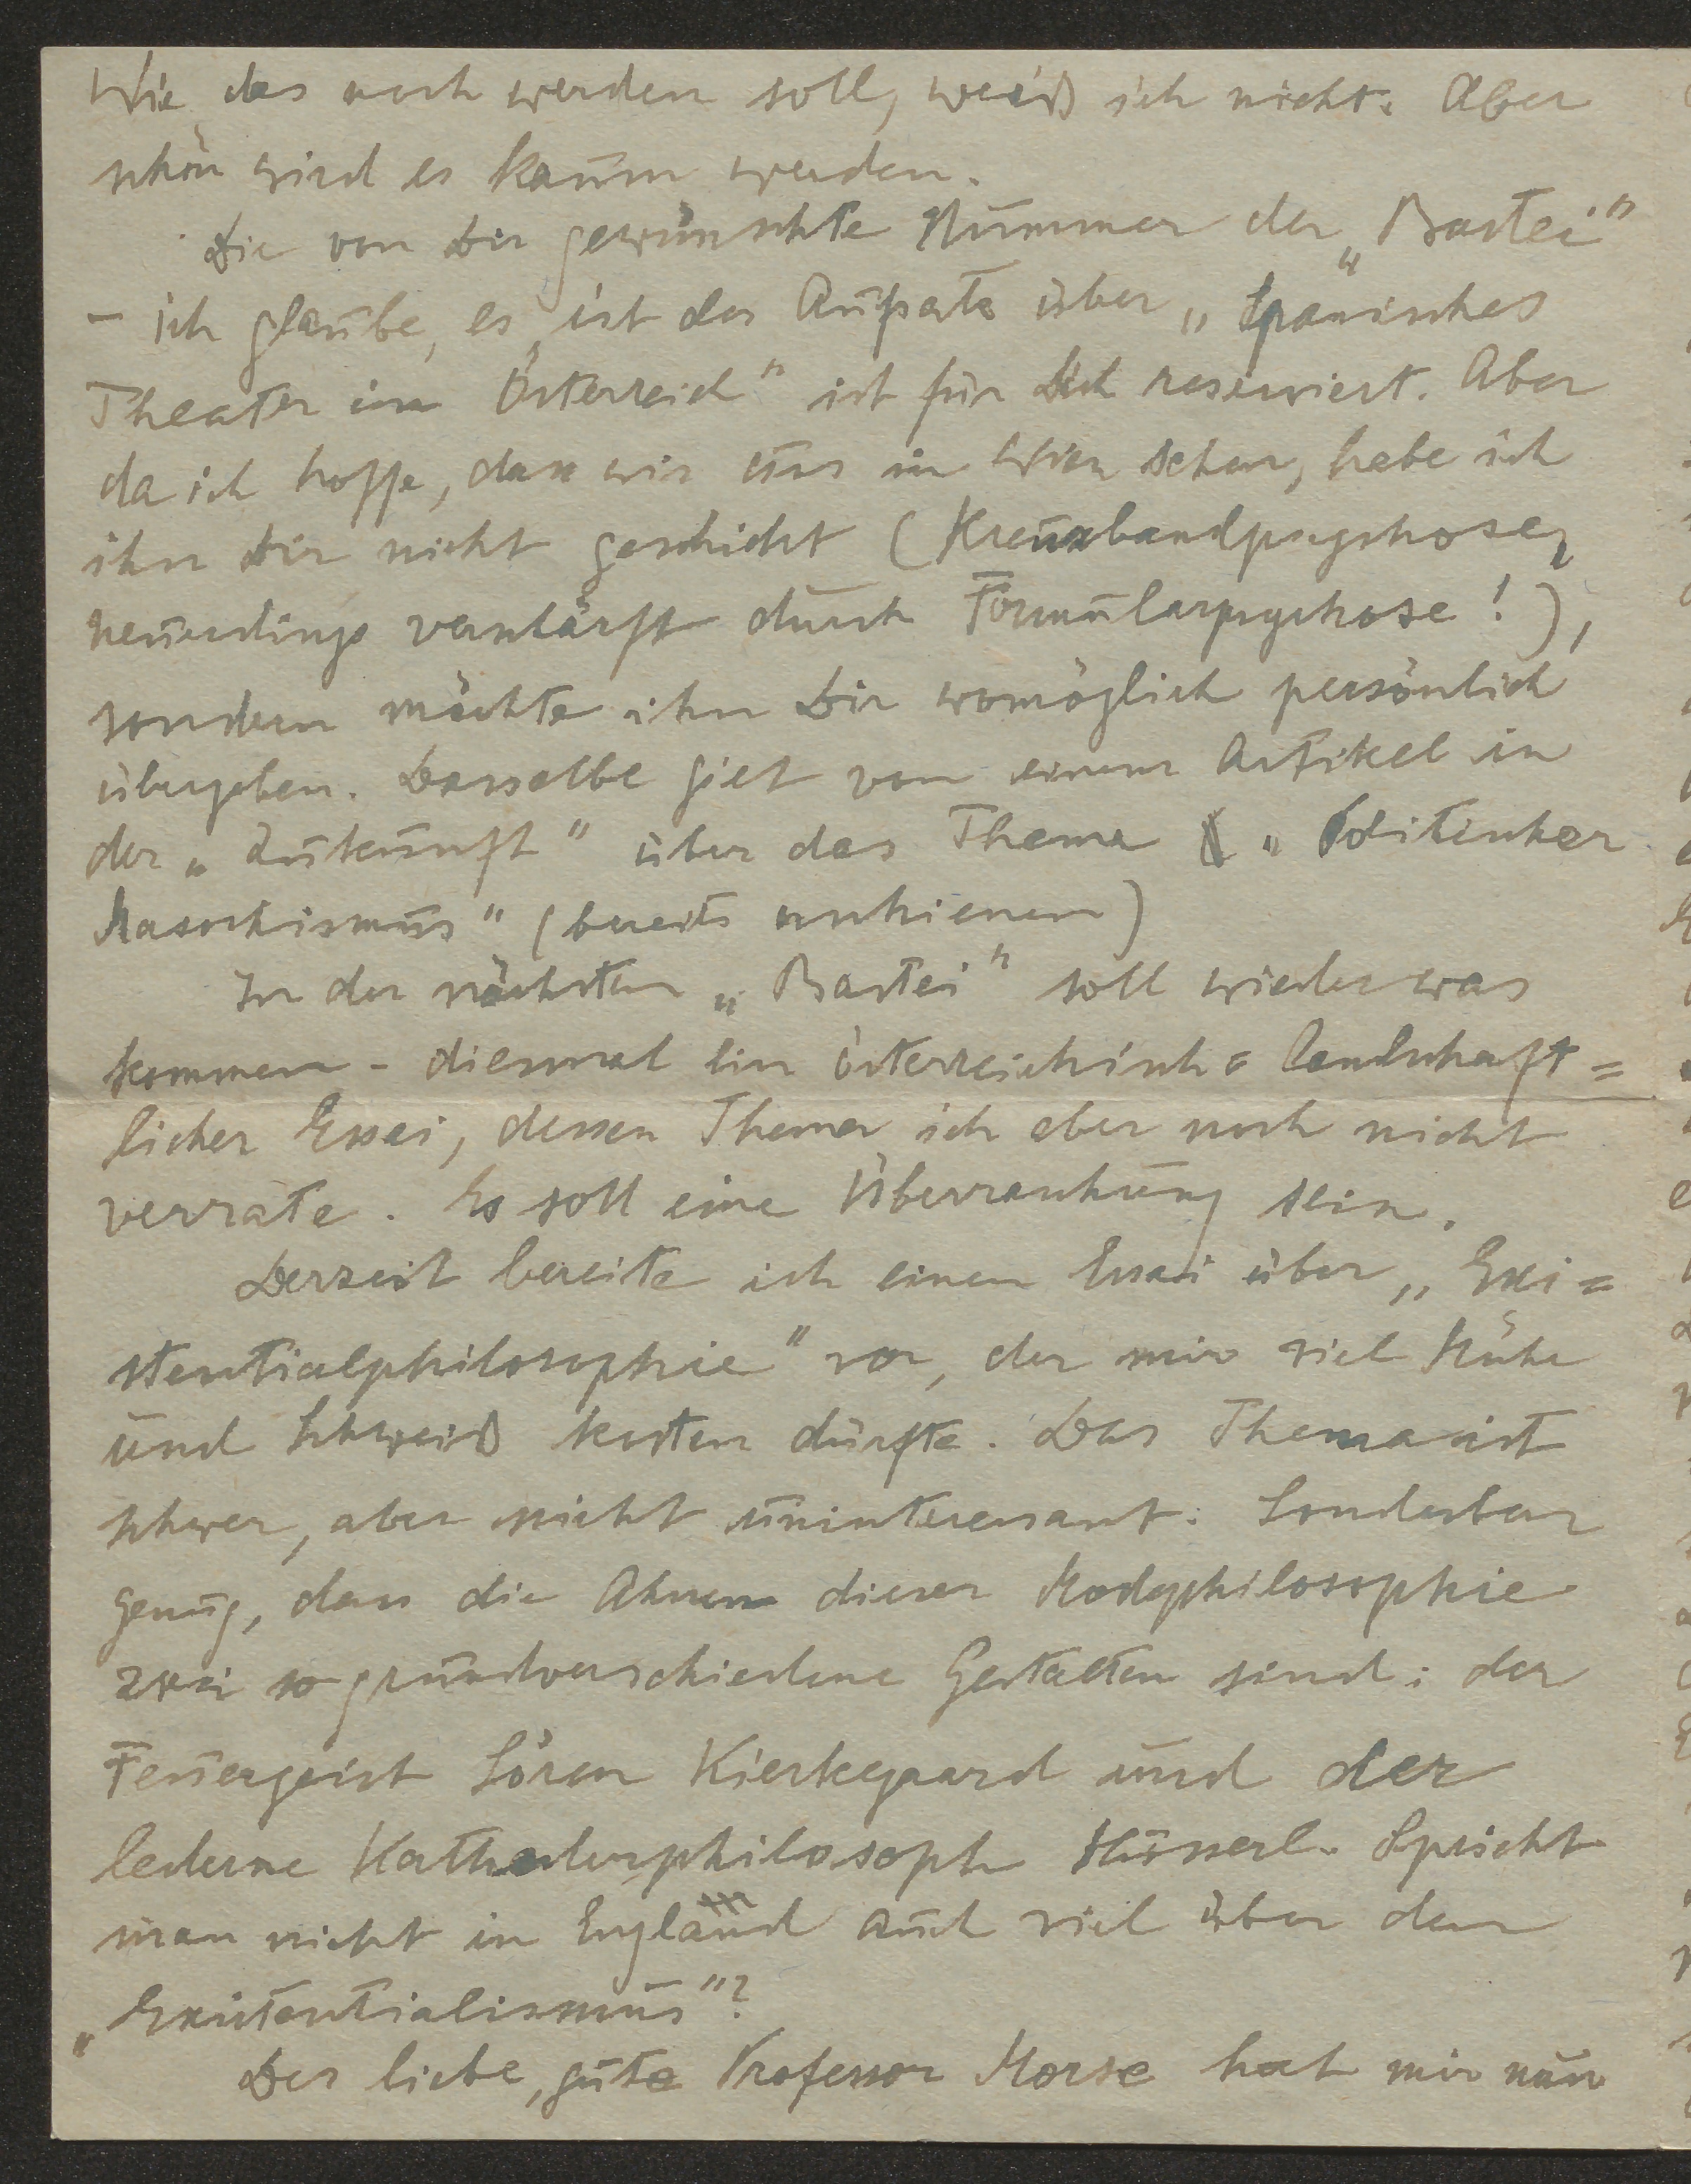 Wie das noch werden soll, weiß ich nicht. Aber
schön wird es kaum werden.
Die von Dir gewünschte Nummer der „Bastei"
- ich glaube, es ist der Aufsatz über „Spanisches
Theater in Österreich" ist für Dich reserviert. Aber
da ich hoffe, dass wir uns in Wien sehen, habe ich
ihn Dir nicht geschickt (Kreuzbandpsychose,
neuerdings verschärft durch Formularpsychose!),
sondern möchte ihn Dir womöglich persönlich
übergeben. Dasselbe gilt von einem Artikel in
der „Zukunft" über das Thema „Politischer
Masochismus" (bereits erschienen)
In der nächsten „Bastei" soll wieder was
kommen - diesmal ein österreichisch = landschaft=
licher Essai, dessen Thema ich aber noch nicht
verrate. Es soll eine Überraschung sein.
Derzeit bereite ich einen Essai über „Exi=
stentialphilosophie" vor, der mir viel Mühe
und Schweiß kosten dürfte. Das Thema ist
schwer, aber nicht uninteressant. Sonderbar
genug, dass die Ahnen dieser Modephilosophie
zwei so grundverschiedene Gestalten sind: der
Feuergeist Sören Kierkegaard und der
lederne Kathederphilosoph Husserl. Spricht
man nicht in England auch viel über den
„Existentialismus"?
Der liebe, gute Professor Morse hat mir nun